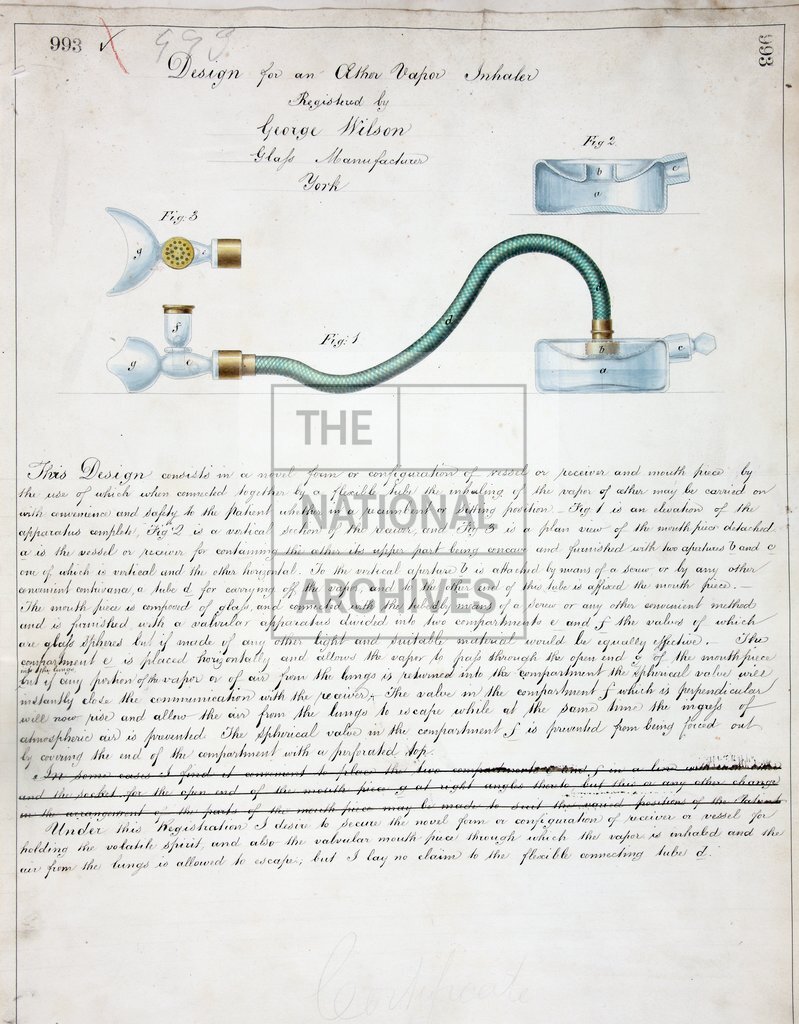 993
993
993
Design for an Æther Vapor Inhaler
Registered by
George Wilson
Glass Manufacturer
York
Fig 2
b
c
a
Fig: 3
g
e
f
Fig: 1
d
g
e
b
c
a
d
THE
NATIONAL
ARCHIVES
This Design consists in a novel form or configuration of vessel or receiver and mouth piece by
the use of which when connected together by a flexible tube the inhaling of the vapor of æther may be carried on
with convenience and safety to the Patient whether in a recumbent or sitting position. Fig 1 is an elevation of the
apparatus complete, Fig 2 is a vertical section of the receiver, and Fig 3 is a plan view of the mouth piece detached
a is the vessel or receiver for containing the æther its upper part being concave and furnished with two apertures b and c
one of which is vertical and the other horizontal. To the vertical aperture b is attached by means of a screw or by any other
convenient contrivance, a tube d for carrying off the vapor, and to the other end of this tube is affixed the mouth piece.
The mouth piece is composed of glass, and connected to the tube by means of a screw or any other convenient method
and is furnished with a valvular apparatus divided into two compartments e and f the valves of which
are glass spheres but if made of any other light and suitable material would be equally effective. The
compartment e is placed horizontally and allows the vapor to pass through the open end g of the mouth piece
into the lungs
but if any portion of the vapor or of air from the lungs is returned into the compartment the spherical valve will
instantly close the communication with the receiver. The valve in the compartment f which is perpendicular
will now rise and allow the air from the lungs to escape while at the same time the ingress of
atmospheric air is prevented The spherical valve in the compartment f is prevented from being forced out
by covering the end of the compartment with a perforated top.
In some cases I find it convenient to place the two compartments and f in a line with
and the socket for the open end of the mouth piece g at right angles thereto but this or any other change
in the arrangement of the parts of the mouth piece may be made to suit the varied positions of the Patient
Under this Registration I desire to secure the novel form or configuration of receiver or vessel for
holding the volatile spirit, and also the valvular mouth piece through which the vapor is inhaled and the
air from the lungs is allowed to escape; but I lay no claim to the flexible connecting tube d.
Certificate